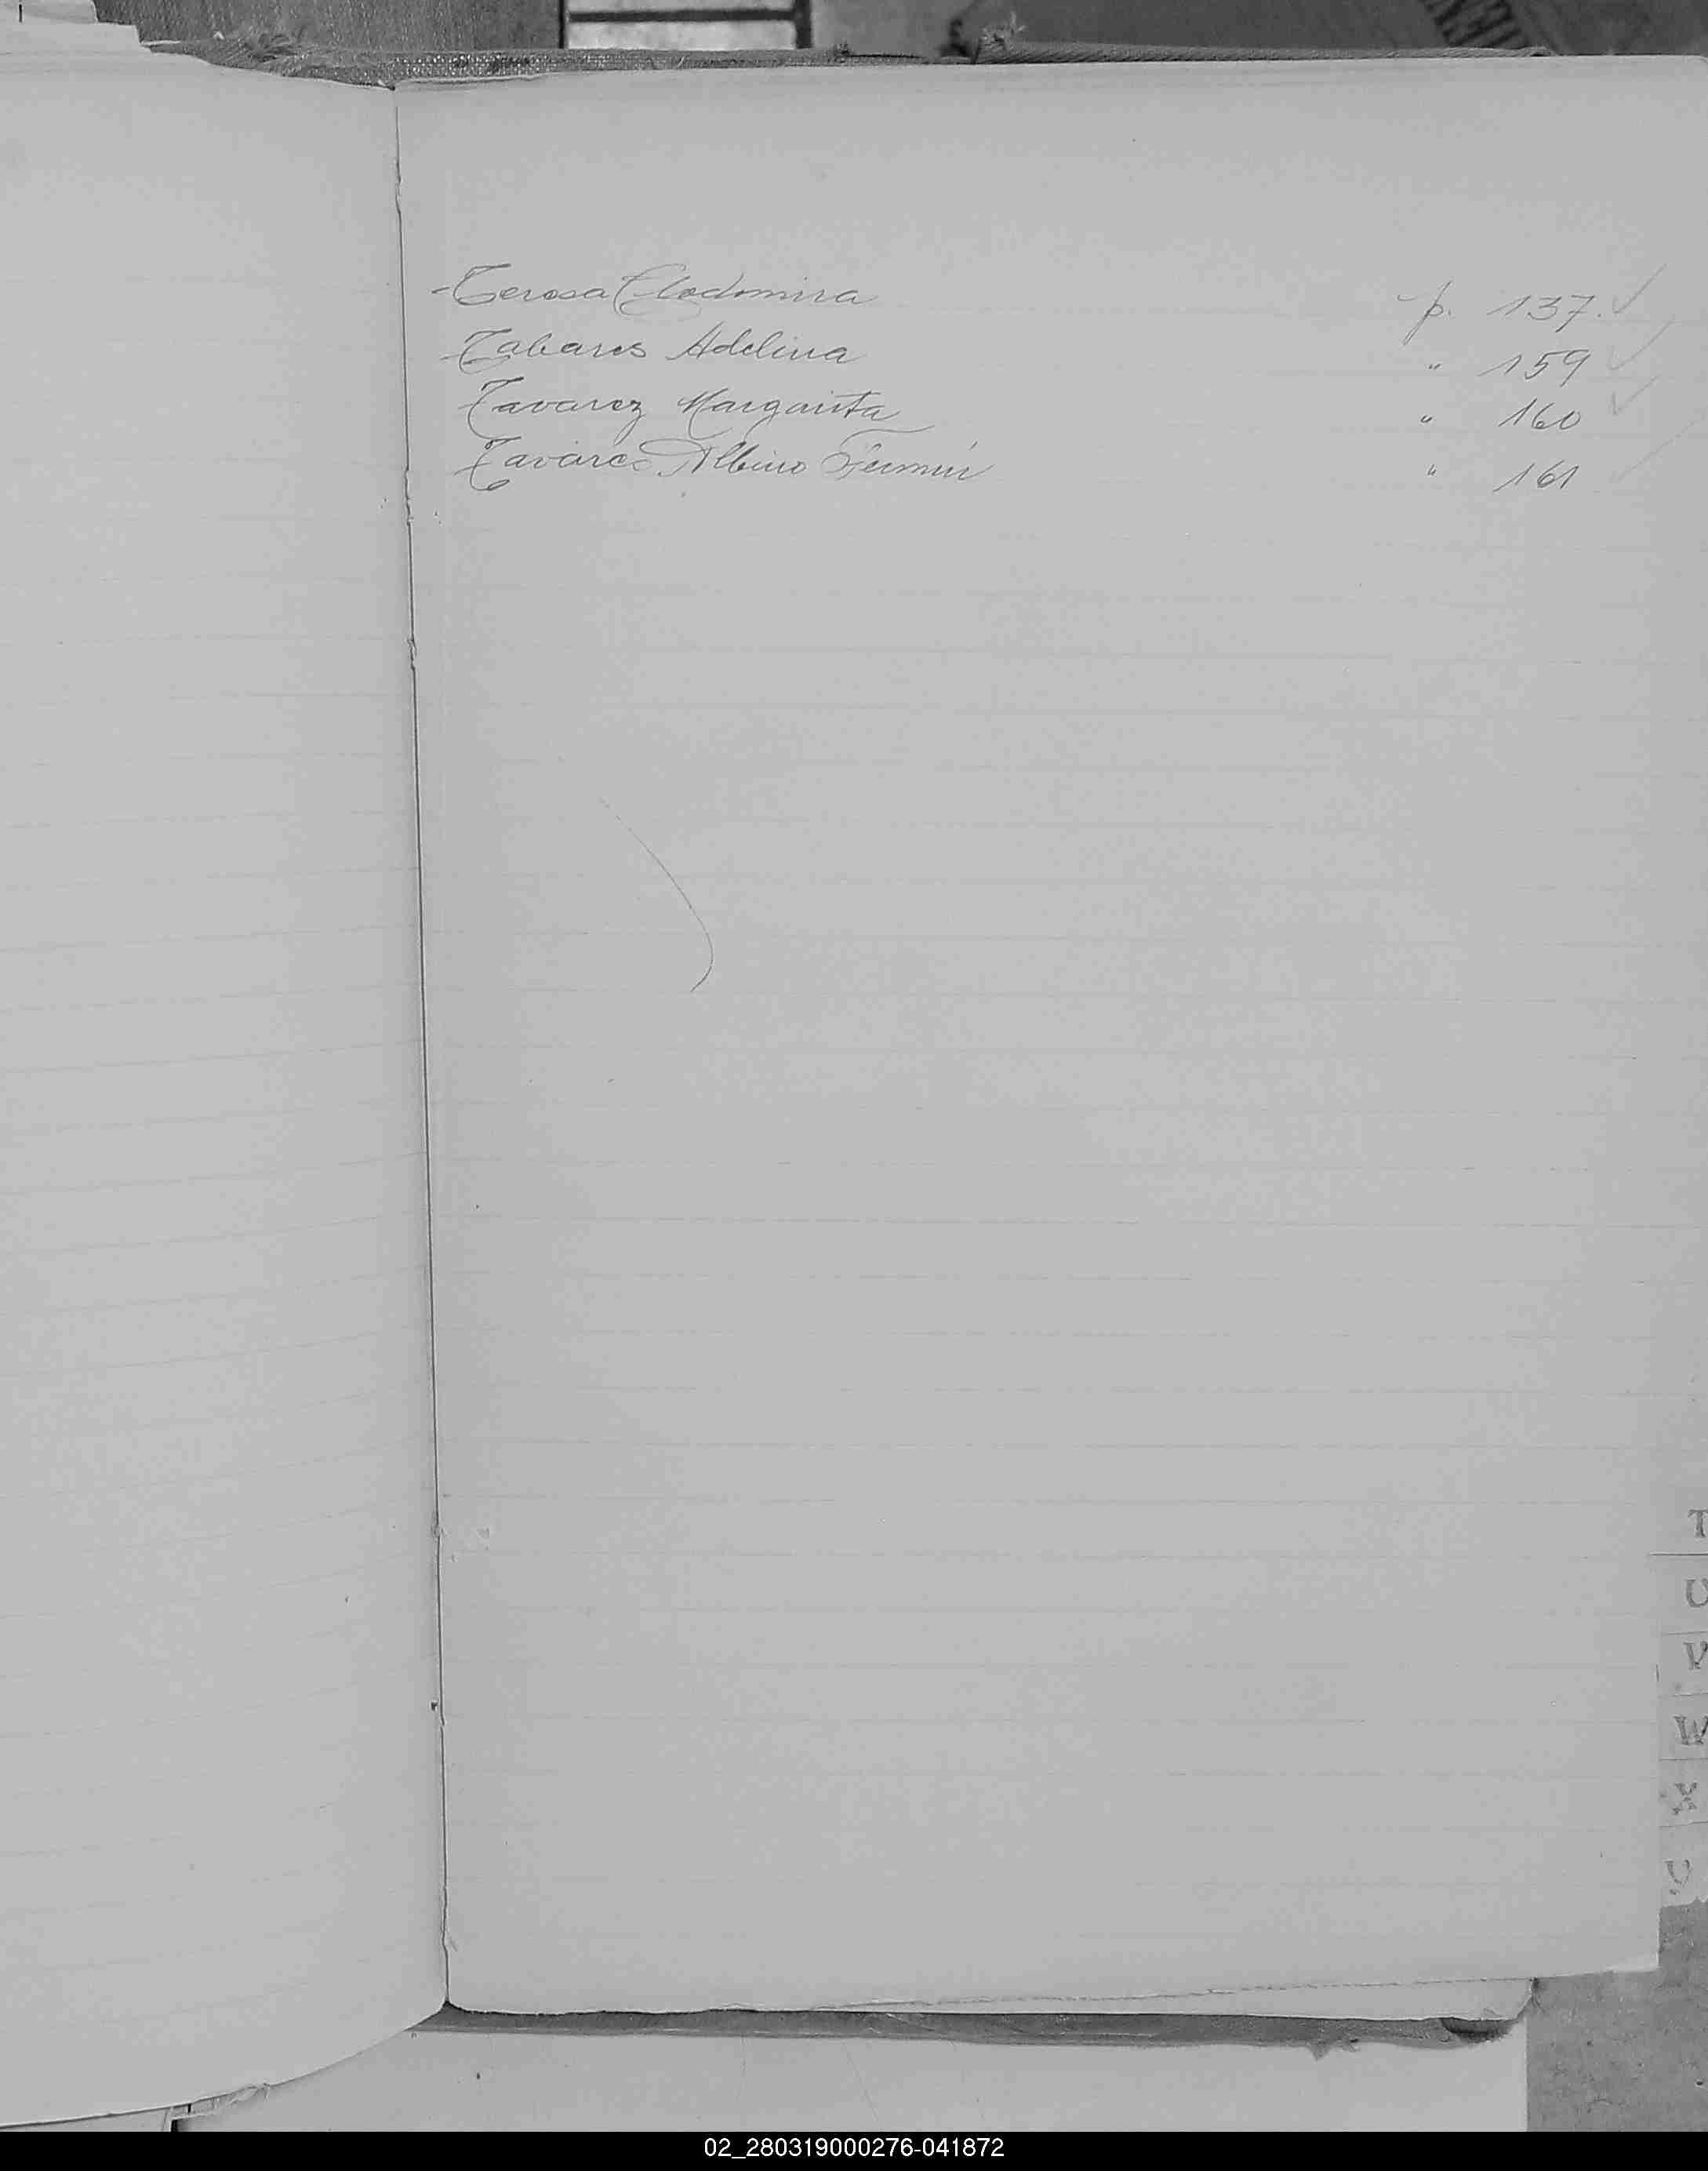 Terosa Clodomira p. 137. ✓
Tabares Adelina " 159 ✓
Tavarez Margarita " 160 ✓
Tavares Albino Fermín " 161
T
U
V
W
X
02_280319000276-041872